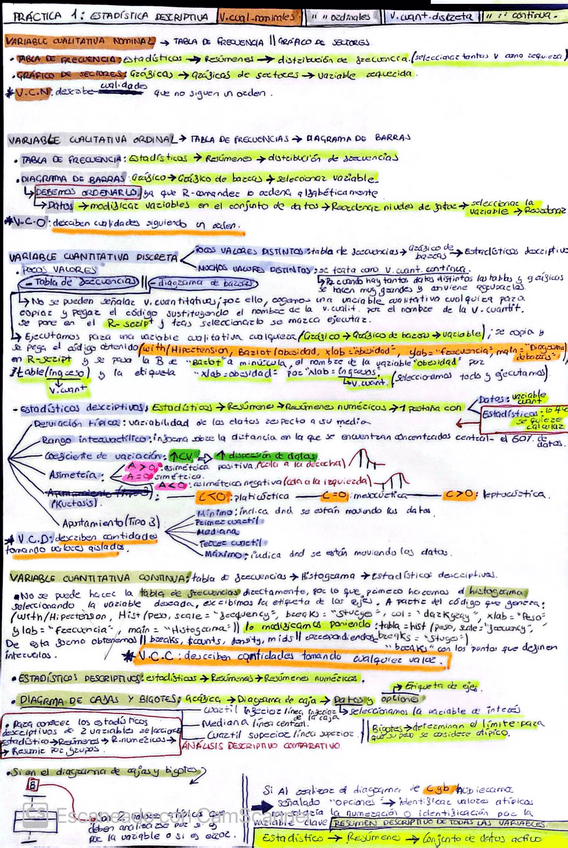 PRÁCTICA 1: ESTADÍSTICA DESCRIPTIVA V. cual. nominales " " ordinales V. cuant. discreta " " continua.
VARIABLE CUALITATIVA NOMINAL → TABLA DE FRECUENCIA || GRÁFICO DE SECTORES
• TABLA DE FRECUENCIA: Estadísticos → Resúmenes → distribución de frecuencia. (seleccionar tantas V como requiera)
• GRÁFICO DE SECTORES: Gráficas → Gráficas de sectores → variable requerida.
* V.C.N: describe cualidades que no siguen un orden.
VARIABLE CUALITATIVA ORDINAL → TABLA DE FRECUENCIAS → DIAGRAMA DE BARRAS
• TABLA DE FRECUENCIA: Estadísticos → Resúmenes → distribución de frecuencias
• DIAGRAMA DE BARRAS: Gráfico → Gráfico de barras → seleccionar variable.
↳ DEBEMOS ORDENARLO, ya que R-comander lo ordena alfabéticamente
↳ Datos → modificar variables en el conjunto de datos → Reordenar niveles de factor → seleccionar la variable → Reordenar
* V.C.O: describen cualidades siguiendo un orden.
VARIABLE CUANTITATIVA DISCRETA POCOS VALORES DISTINTOS: tabla de frecuencias → Gráfico de barras → Estadísticos descriptivos
MUCHOS VALORES DISTINTOS: se trata como V. cuant. continua.
• POCOS VALORES
↳ Pq cuando hay tantos datos distintos las tablas y gráficos se hacen muy grandes y conviene
- Tabla de frecuencias || - diagrama de barras
↳ No se pueden señalar V. cuantitativas, por ello, cogemos una variable cualitativa cualquiera para
copiar y pegar el código sustituyendo el nombre de la V. cualit. por el nombre de la V. cuantit.
se pone en el R-script y tras seleccionarlo se marca ejecutar.
↳ Ejecutamos para una variable cualitativa cualquiera (Gráfica → Gráfico de barras → variable), se copia y
se pega el código obtenido (with(Hipertension, Barplot(obesidad, xlab="obesidad", ylab="frecuencia", main="Diagrama de barras"))
en R-script y se pasa la B de "Barplot" a minúscula, el nombre de la variable "obesidad" por
table(ingreso) y la etiqueta "xlab=obesidad" por "xlab=ingresos". (seleccionamos todo y ejecutamos)
V. cuant. V. cuant.
• Estadísticos descriptivos: Estadísticos → Resúmenes → Resúmenes numéricos → 1 pestaña con Datos: variable cuant
Estadísticos: lo que se quiere calcular
Desviación típica: variabilidad de los datos respecto a su media
Rango intercuartílico: informa sobre la distancia en la que se encuentran concentrados central el 50% de datos.
Coeficiente de variación: ↑CV ↑ dispersión de datos
Asimetría: A>0: asimétrica positiva (cola a la derecha)
A=0 simétrica.
A<0: asimétrica negativa (cola a la izquierda)
(Kurtosis) C<0: platicúrtica C=0: mesocúrtica C>0: leptocúrtica.
Apuntamiento (Tipo 3) Mínimo: indica dnd se están moviendo los datos.
Primer cuartil
Mediana
Tercer cuartil
Máximo: indica dnd se están moviendo los datos.
* V.C.D: describen cantidades tomando valores aislados.
VARIABLE CUANTITATIVA CONTINUA: tabla de frecuencias → Histograma → Estadístico descriptivos.
• No se puede hacer la tabla de frecuencias directamente, por lo que primero hacemos el histograma
seleccionando la variable deseada, escribimos la etiqueta de los ejes. A partir del código que genera:
(with(Hipertension, Hist(Peso, scale="frequency", breaks="Sturges", col="darkgray", xlab="Peso"
ylab="Frecuencia", main="Histograma")) lo modificamos poniendo: tabla=hist(peso, scale="frequency",
De esta forma obtenemos breaks, $counts, density, mids || breaks="Sturges")
intervalos. "breaks" con los puntos que definen
* V.C.C: describen cantidades tomando cualquier valor.
• ESTADÍSTICOS DESCRIPTIVOS: estadísticos → Resúmenes → Resúmenes numéricos.
• DIAGRAMA DE CAJAS Y BIGOTES: Gráfica → Diagrama de caja → Datos y opciones → Etiqueta de ejes
Cuartil inferior: línea inferior de la caja ↳ seleccionamos la variable de interés
Mediana línea central.
Cuartil superior: línea superior Bigotes → determinan el límite para que un peso se considere atípico.
• Para conocer los estadísticos descriptivos de 2 variables seleccionar estadístico → Resúmenes → R. numéricos → Resumir por grupos.
ANÁLISIS DESCRIPTIVO COMPARATIVO.
• Si en el diagrama de cajas y bigotes
8
deben analizarse por si es por la variable o si es error.
Si Al realizar el diagrama de CyB hubiéramos
señalado "opciones → identificar valores atípicos
la numeración o identificación por la
variable clave RESUMEN DESCRIPTIVO DE TODAS LAS VARIABLES.
Estadístico → Resúmenes → Conjunto de datos activo
Escaneado con CamScanner